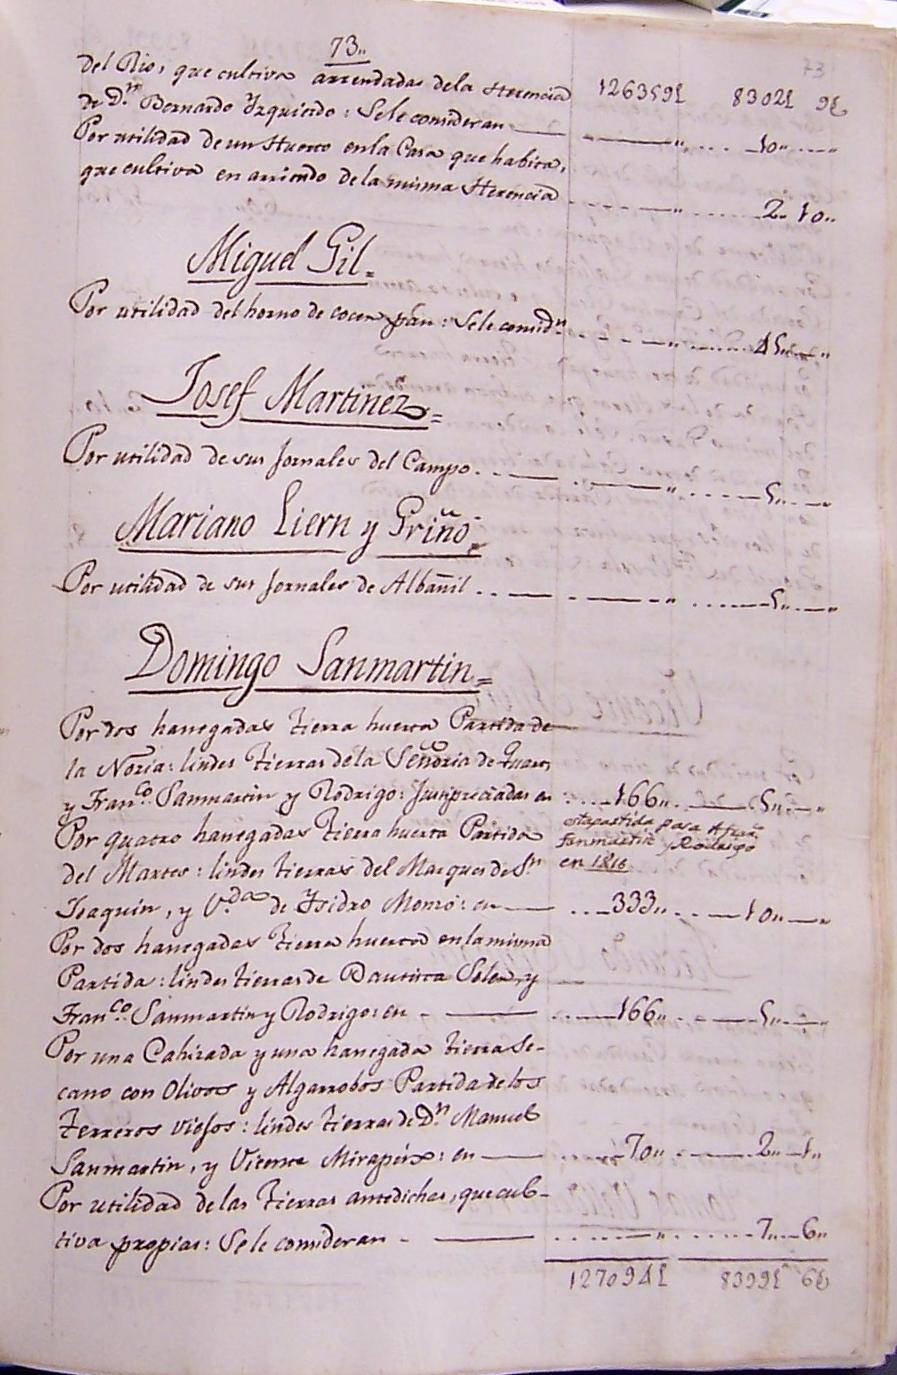 73,,
73
del Rio, que cultiva arrendadas dela Herencia 126359£ 8302£ 9₤
de D.n Bernardo Yzquierdo: Sele consideran —— ——,,.... 10,,....
Por utilidad de un Huerto enla Casa que habita,
que cultiva en arriendo dela misma Herencia ....,, ...... 2,, 10,,
Miguel Gil=
Por utilidad del horno de cocer pan: Sele consid.n ....,, ...... 45,,..,,
Josef Martinez=
Por utilidad de sus Jornales del Campo. . —— ——,, ...... 5,,..,,
Mariano Liern y Griño=
Por utilidad de sus Jornales de Albañil . . —— ——,, ...... 5,,..,,
Domingo Sanmartin=
Por dos hanegadas tierra huerta Partida de
la Noria: lindes tierras dela Señoria de Quart,
y Fran.co Sanmartin y Rodrigo: Justipreciadas en ....166,,....5,,..,,
esta partida pasa a Fran.co
Sanmartin y Rodrigo
en 1816
Por quatro hanegadas tierra huerta Partida
del Martes: lindes tierras del Marques de S.n
Joaquin, y V.da de Isidro Momó: en —— ...333,,....10,,..,,
Por dos hanegadas tierra huerta enla misma
Partida: lindes tierras de Bautista Soler, y
Fran.co Sanmartin y Rodrigo: en - —— ....166,,....5,,..,,
Por una Cahizada y una hanegada tierra se-
cano con Olivos y Algarrobos Partida de los
Terreros viejos: lindes tierras de D.n Manuel
Sanmartin, y Vicente Mirapeix: en —— ....70,,....2,,..1,,
Por utilidad de las tierras antedichas, que cul-
tiva propias: Sele consideran - —— ........,,......7,,..6,,
127094£ 8399£ 6₤